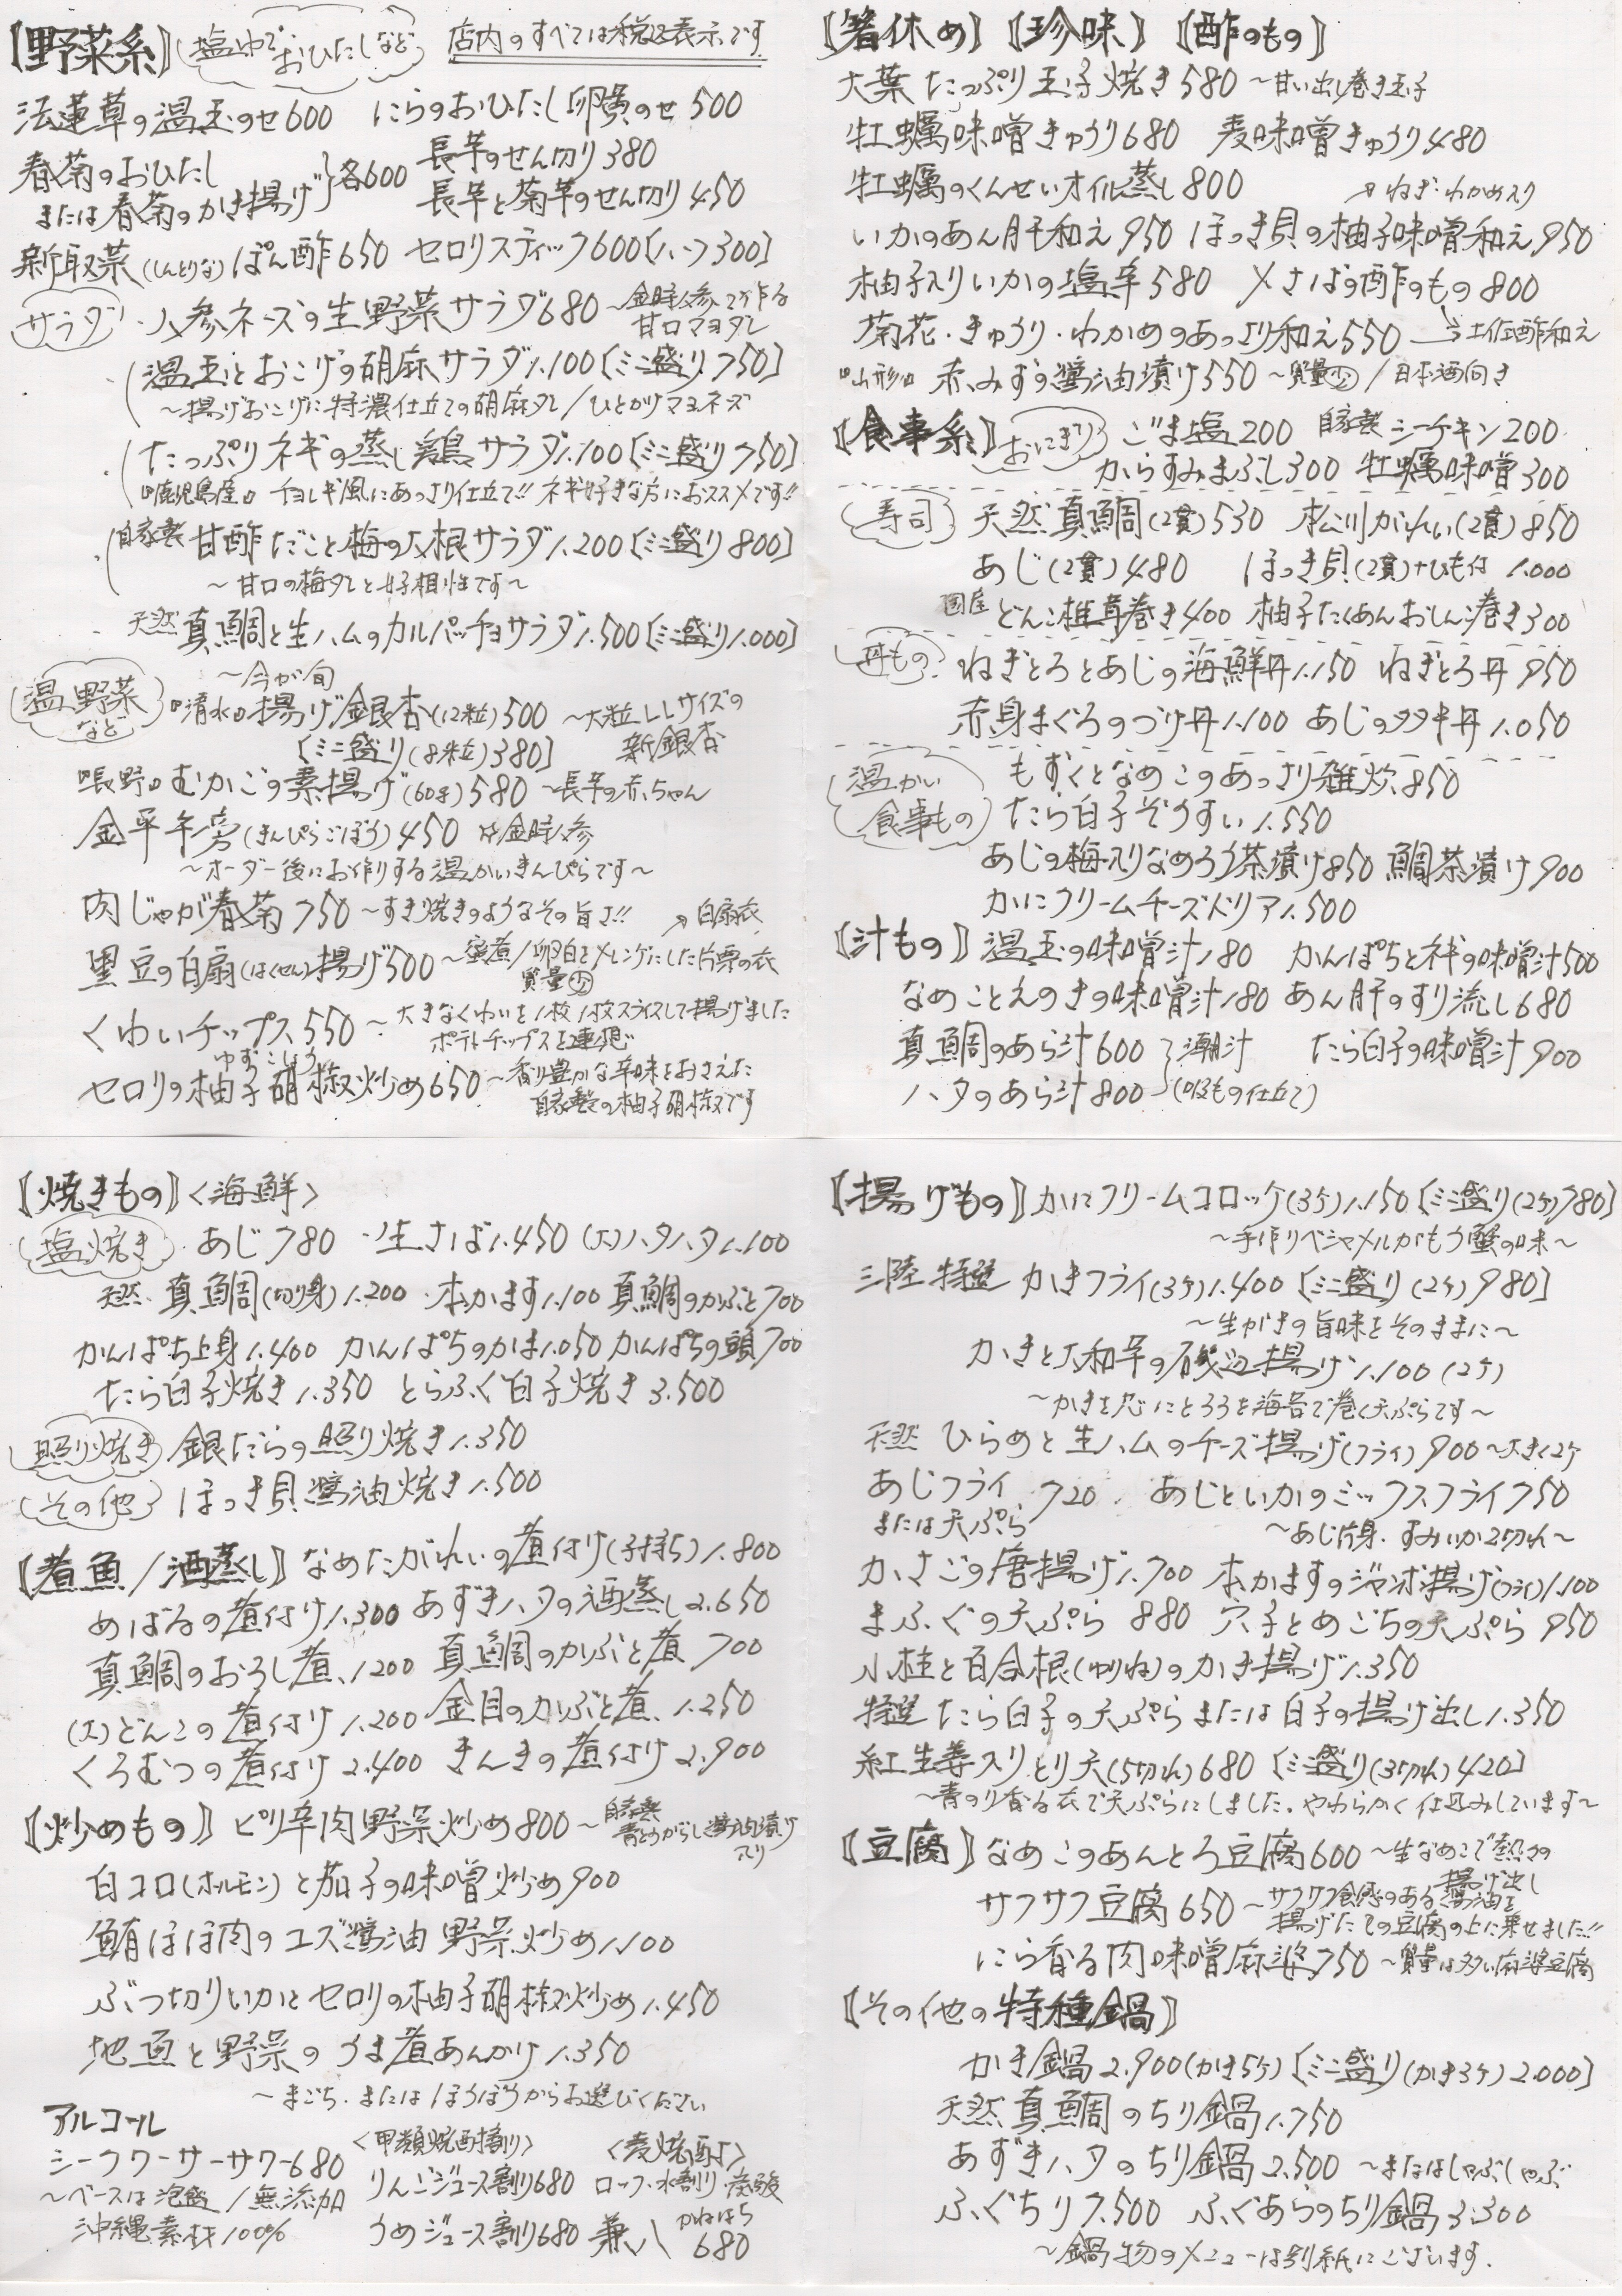 【野菜系】 塩ゆで おひたしなど 店内のすべては税込表示です
法蓮草の温玉のせ600 にらのおひたし卵黄のせ500
春菊のおひたし
または春菊のかき揚げ }各600
長芋のせん切り380
長芋と菊芋のせん切り450
新取菜(しんとりな)ぽん酢650 セロリスティック600[ハーフ300]
サラダ ・人参ネーズの生野菜サラダ680〜金時人参で作る
甘口マヨダレ
・温玉とおこげの胡麻サラダ1.100[ミニ盛り750]
〜揚げおこげに特濃仕立ての胡麻ダレ/ひとかけマヨネーズ
・たっぷりネギの蒸し鶏サラダ1.100[ミニ盛り750]
『鹿児島産』チョレギ風にあっさり仕立て!!ネギ好きな方におススメです!!
・自家製 甘酢だこと梅の大根サラダ1.200[ミニ盛り800]
〜甘口の梅ダレと好相性です〜
・天然 真鯛と生ハムのカルパッチョサラダ1.500[ミニ盛り1.000]
温野菜など
〜今が旬
『清水』揚げ銀杏(12粒)500 〜大粒LLサイズの
新銀杏
[ミニ盛り(8粒)380]
『長野』むかごの素揚げ(60g)580 〜長芋の赤ちゃん
金平牛蒡(きんぴらごぼう)450 ☆金時人参
〜オーダー後にお作りする温かいきんぴらです〜
肉じゃが春菊750〜すき焼きのようなその旨さ!! →白扇衣
黒豆の白扇(はくせん)揚げ500〜蜜煮/卵白をメレンゲにした片栗の衣
質量少
くわいチップス550〜大きなくわいを1枚1枚スライスして揚げました
ポテトチップスを連想
ゆずこしょう
セロリの柚子胡椒炒め650〜香り豊かな辛味をおさえた
自家製の柚子胡椒です
【箸休め】【珍味】【酢のもの】
大葉たっぷり玉子焼き580〜甘い出し巻き玉子
牡蠣味噌きゅうり680 麦味噌きゅうり480
牡蠣のくんせいオイル蒸し800 →ねぎ・わかめ入り
いかのあん肝和え950 ほっき貝の柚子味噌和え950
柚子入りいかの塩辛580 〆さばの酢のもの800
菊花・きゅうり・わかめのあっさり和え550→土佐酢和え
『山形』赤みずの醤油漬け550〜質量少/日本酒向き
【食事系】 おにぎり ごま塩200 自家製シーチキン200
からすみまぶし300 牡蠣味噌300
寿司 天然真鯛(2貫)530 松川がれい(2貫)850
あじ(2貫)480 ほっき貝(2貫)+ひも付 1.000
国産どんこ椎茸巻き400 柚子たくあんおしんこ巻き300
丼もの ねぎとろとあじの海鮮丼1.150 ねぎとろ丼950
赤身まぐろのづけ丼1.100 あじのタタキ丼1.050
温かい食事もの もずくとなめこのあっさり雑炊850
たら白子ぞうすい1.550
あじの梅入りなめろう茶漬け850 鯛茶漬け900
かにクリームチーズドリア1.500
【汁もの】温玉の味噌汁180 かんぱちとネギの味噌汁500
なめことえのきの味噌汁180 あん肝のすり流し680
真鯛のあら汁600 }潮汁 たら白子の味噌汁900
ハタのあら汁800 (吸もの仕立て)
【焼きもの】<海鮮>
塩焼き あじ780 ・生さば1.450 (大)ハタハタ1.100
天然・真鯛(切り身)1.200・本かます1.100 真鯛のかぶと700
かんぱち上身1.400 かんぱちのかま1.050 かんぱちの頭700
たら白子焼き1.350 とらふぐ白子焼き3.500
照り焼き 銀だらの照り焼き1.350
その他 ほっき貝醤油焼き1.500
【煮魚/酒蒸し】なめたがれいの煮付け(子持ち)1.800
めばるの煮付け1.300 あずきハタの酒蒸し2.650
真鯛のおろし煮1.200 真鯛のかぶと煮700
(大)どんこの煮付け1.200 金目のかぶと煮1.250
くろむつの煮付け2.400 きんきの煮付け2.900
【炒めもの】ピリ辛肉野菜炒め800〜自家製
青とうがらし醤油漬け
入り
白コロ(ホルモン)と茄子の味噌炒め900
鮪ほほ肉のユズ醤油野菜炒め1.100
ぶつ切りいかとセロリの柚子胡椒炒め1.450
地魚と野菜のうま煮あんかけ1.350
〜まごち・またはほうぼうからお選びください
アルコール
シークワーサーサワー680
〜ベースは泡盛/無添加
沖縄素材100%
<甲類焼酎割り>
りんごジュース割り680
うめジュース割り680
<麦焼酎>
ロック・水割り・炭酸
かねはち
兼八 680
【揚げもの】かにクリームコロッケ(3ケ)1.150[ミニ盛り(2ケ)780]
〜手作りベシャメルがもつ蟹の味〜
三陸特選 かきフライ(3ケ)1.400[ミニ盛り(2ケ)980]
〜生がきの旨味をそのままに〜
かきと大和芋の磯辺揚げ1.100(2ケ)
〜かきを芯にとろろを海苔で巻く天ぷらです〜
天然 ひらめと生ハムのチーズ揚げ(フライ)900〜大きく2ケ
あじフライ
または天ぷら 720 ・あじといかのミックスフライ750
〜あじ片身・すみいか2切れ〜
かさごの唐揚げ1.700 本かますのジャンボ揚げ(フライ)1.100
まふぐの天ぷら 880 穴子とめごちの天ぷら950
小柱と百合根(ゆりね)のかき揚げ1.350
特選たら白子の天ぷらまたは白子の揚げ出し1.350
紅生姜入りとり天(5切れ)680[ミニ盛り(3切れ)420]
〜青のり香る衣で天ぷらにしました。やわらかく仕込みしています〜
【豆腐】なめこのあんとろ豆腐600〜生なめこで熱々の
揚げ出し
サクサク豆腐650〜サクサク食感のある醤油を
揚げたての豆腐の上に乗せました!!
にら香る肉味噌麻婆750〜質量は多い麻婆豆腐
【その他の特種鍋】
かき鍋2.900(かき5ケ)[ミニ盛り(かき3ケ)2.000]
天然真鯛のちり鍋1.750
あずきハタのちり鍋2.500 〜またはしゃぶしゃぶ
ふぐちり7.500 ふぐあらのちり鍋3.300
〜鍋物のメニューは別紙にございます.